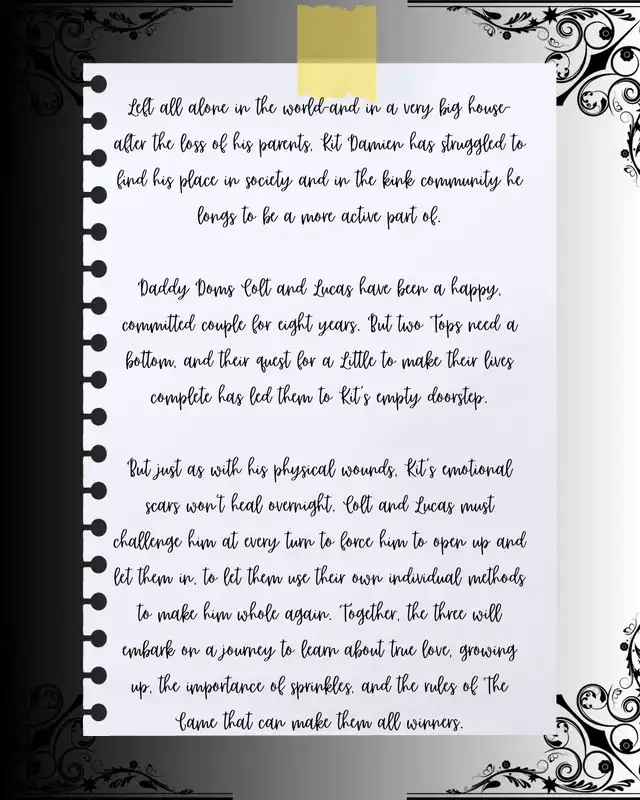 Left all alone in the world-and in a very big house-
after the loss of his parents, Kit Damien has struggled to
find his place in society and in the kink community he
longs to be a more active part of.
Daddy Doms Colt and Lucas have been a happy,
committed couple for eight years. But two Tops need a
bottom, and their quest for a Little to make their lives
complete has led them to Kit's empty doorstep.
But just as with his physical wounds, Kit's emotional
scars won't heal overnight. Colt and Lucas must
challenge him at every turn to force him to open up and
let them in, to let them use their own individual methods
to make him whole again. Together, the three will
embark on a journey to learn about true love, growing
up, the importance of sprinkles, and the rules of The
Game that can make them all winners.